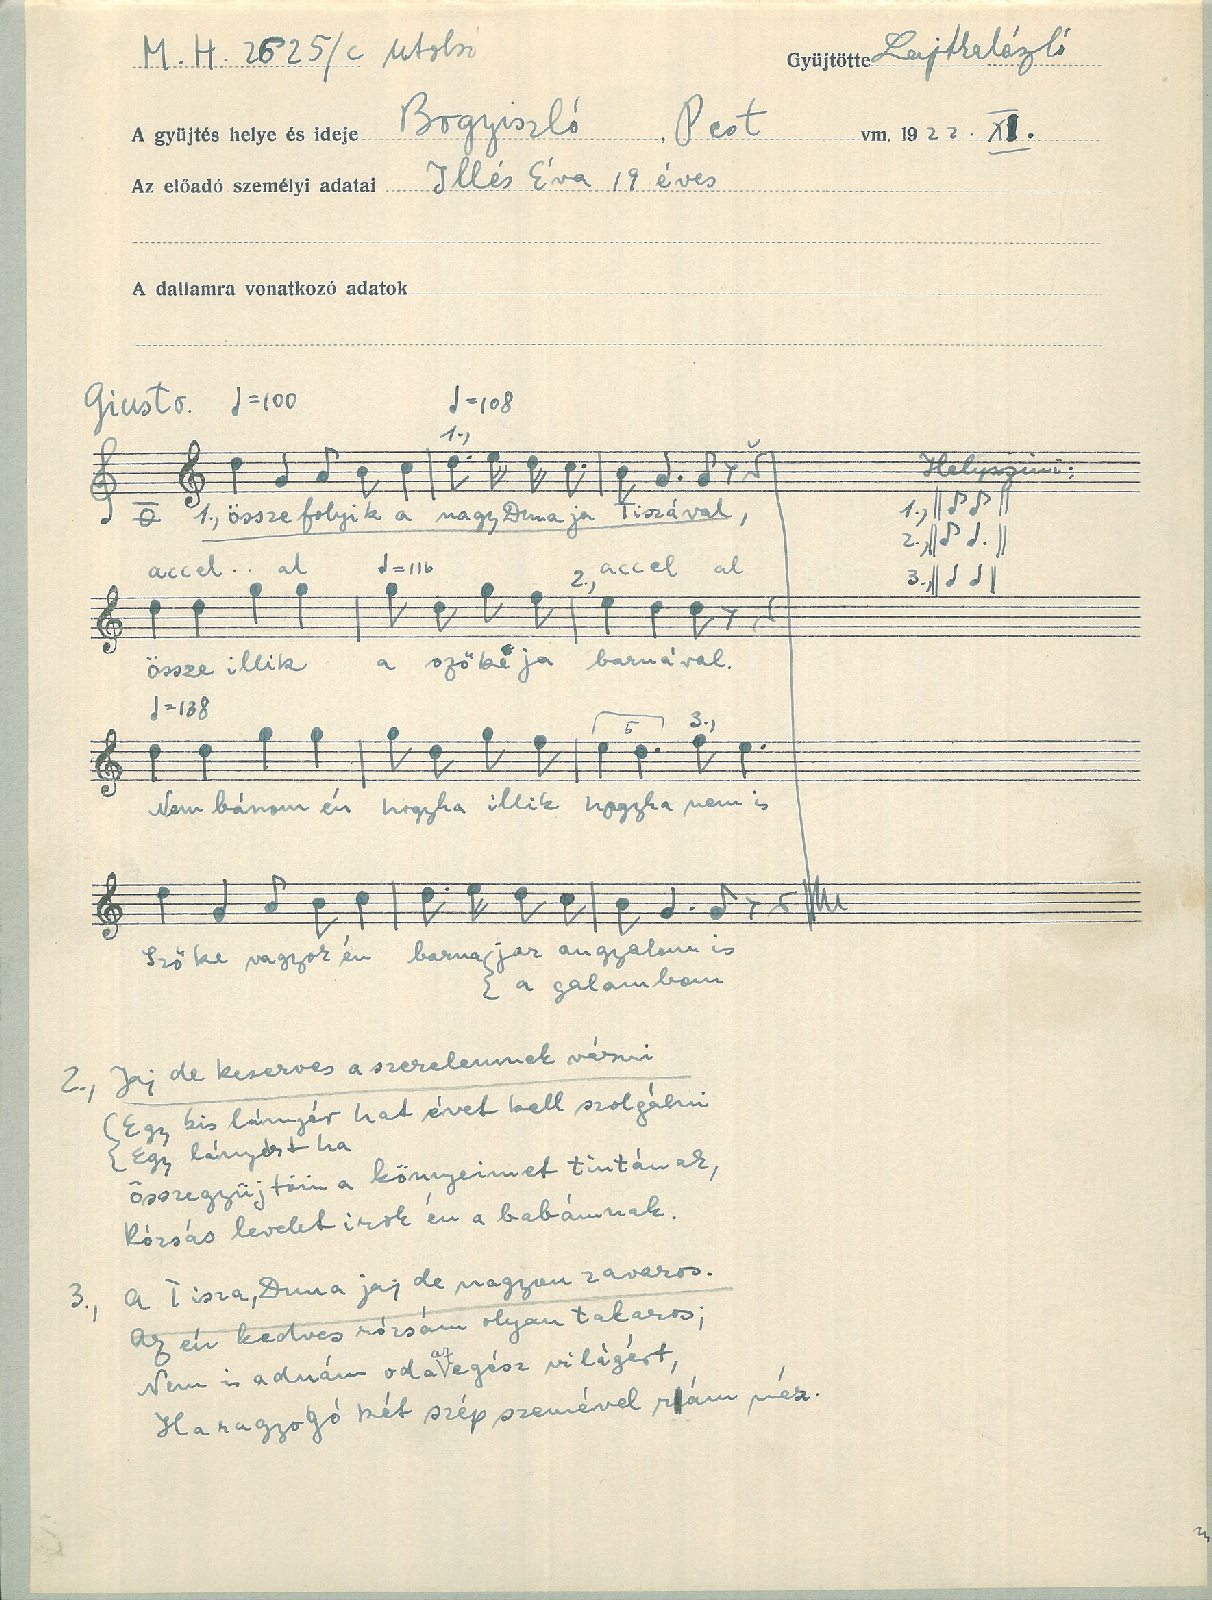 M. H. 2625/c utolsó
Gyüjtötte Lajtha László
A gyüjtés helye és ideje Bogyiszló, Pest vm. 1922. XI.
Az előadó személyi adatai Illés Éva 19 éves
A dallamra vonatkozó adatok
Giusto. ♩=100 ♩=108
1.,
Helyszíni:
1., össze folyik a nagy Duna ja Tiszával,
1.,
2.,
3.,
accel.. al ♩=116 2., accel al
össze illik a szőke ja barnával.
♩=138
5 3.,
Nem bánom én hogyha illik hogyha nem is
Szőke vagyok én barna jaz angyalom is
a galambom
2., Jaj de keserves a szerelemnek várni
Egy kis lányér hat évet kell szolgálni
Egy lányért ha
Összegyüjtöm a könyeimet tintának,
Rózsás levelet irok én a babámnak.
3., A Tisza, Duna jaj de nagyon zavaros.
Az én kedves rózsám olyan takaros;
Nem is adnám oda az egész világért,
Ha ragyogó két szép szemével rám néz.